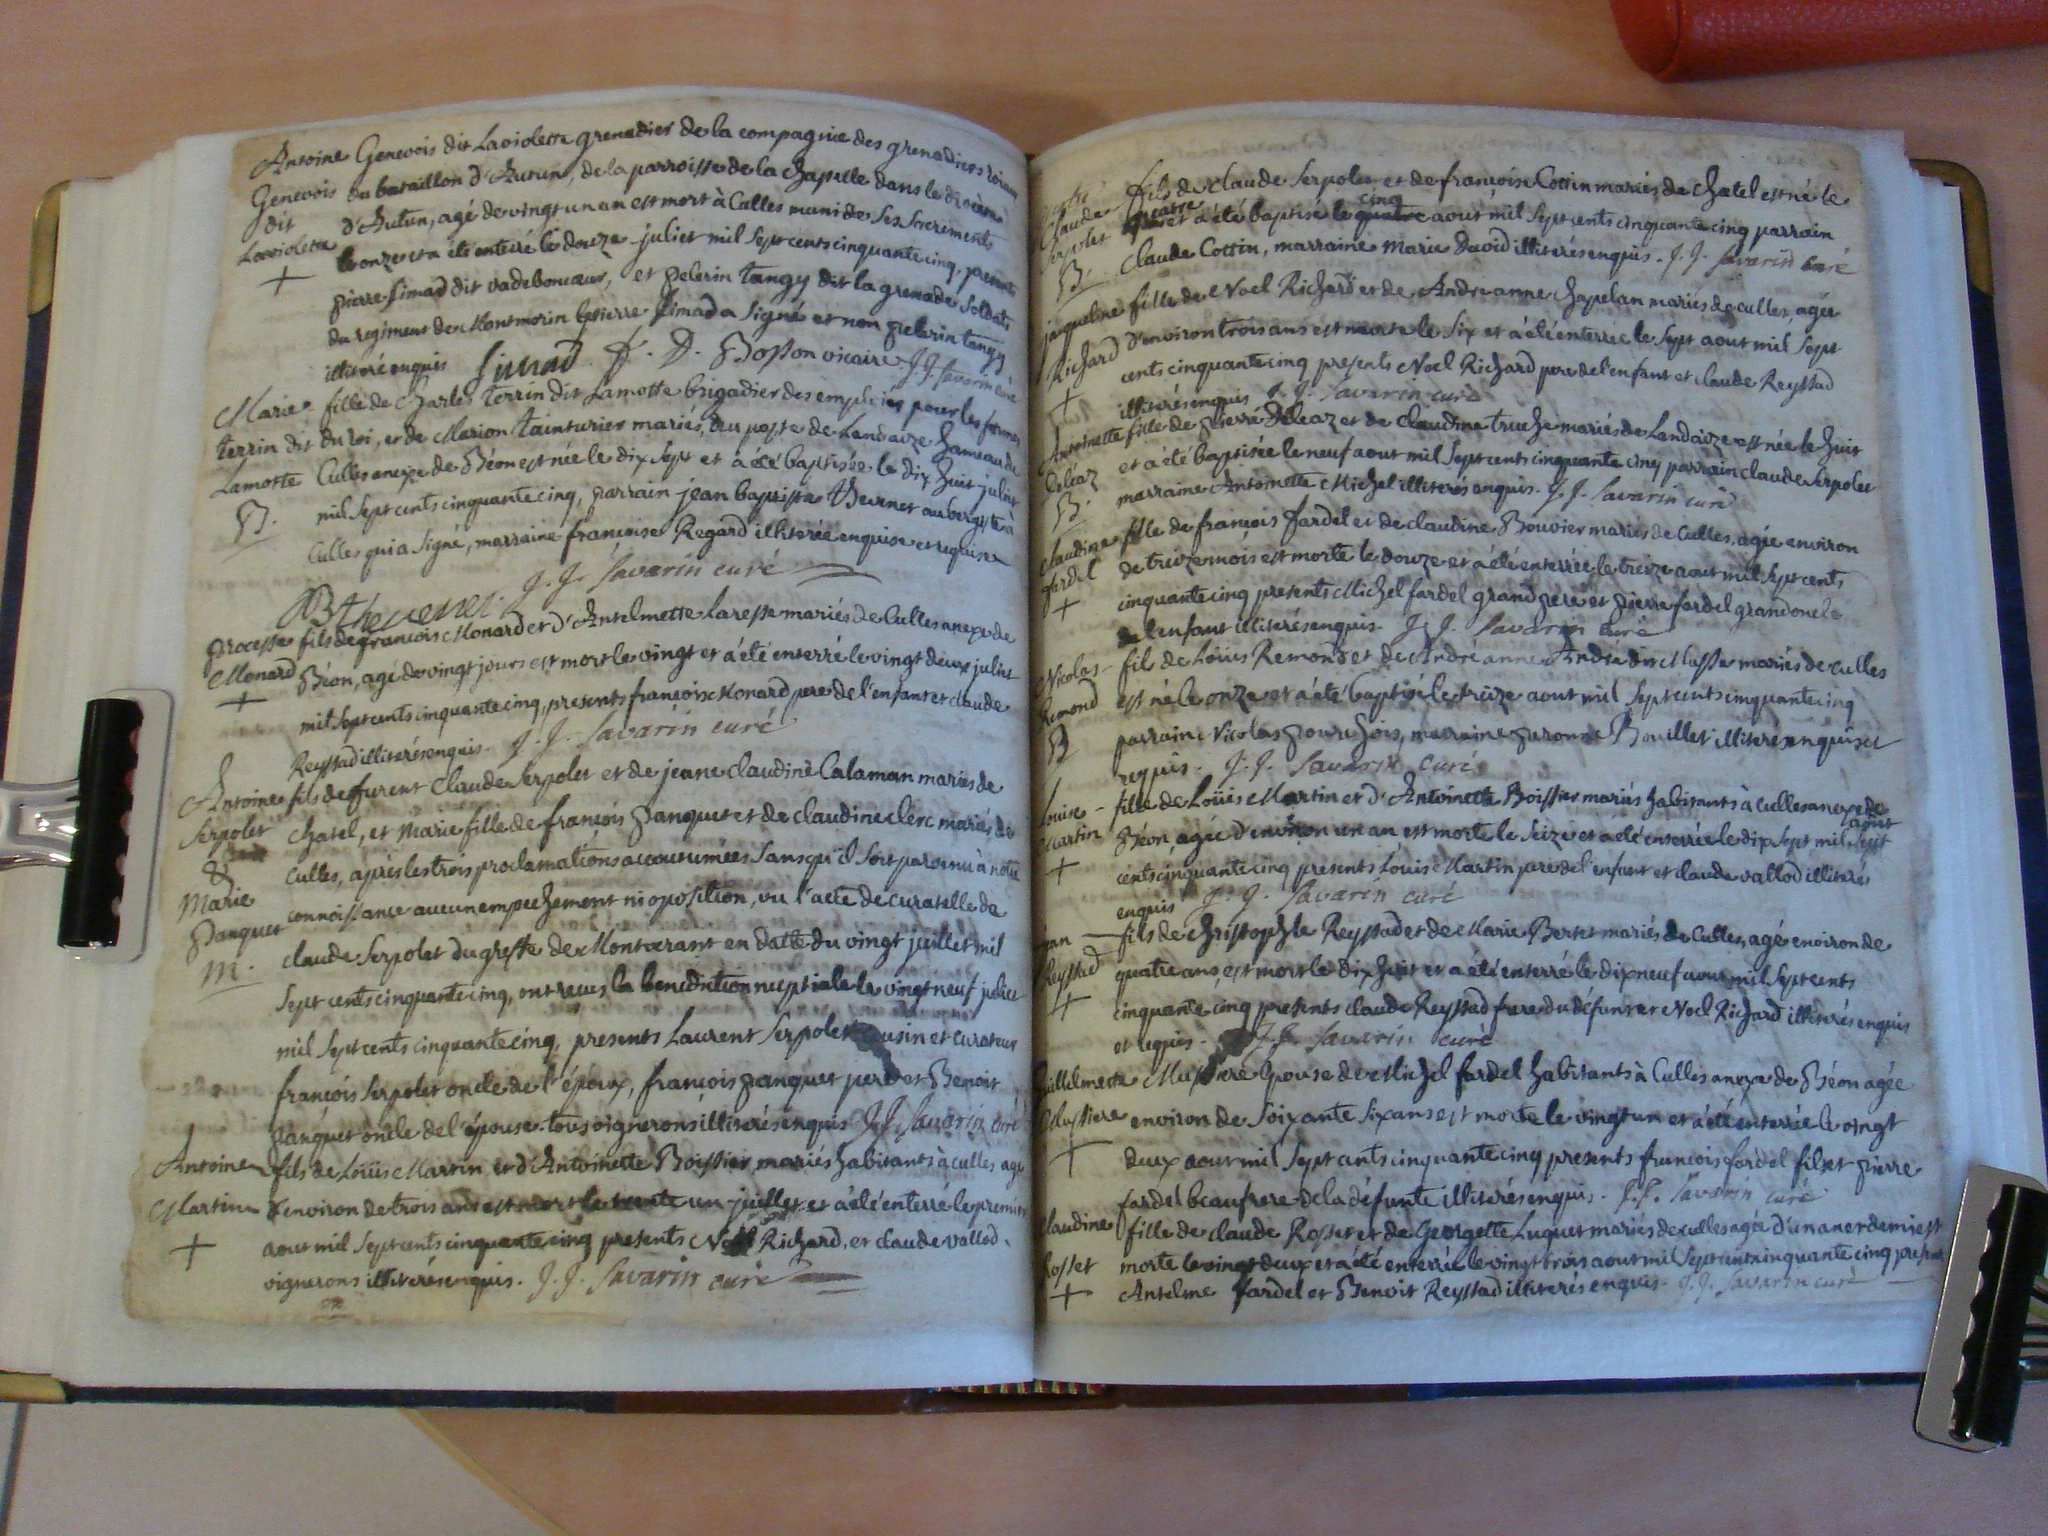 Antoine Genevois dit Laviolette grenadier de la compagnie des grenadiers roiaux
Genevois du bataillon d'Autun, de la parroisse de la chapelle dans le diocese
dit d'Autun, agé de vingt un an est mort à Culles muni de ses sacrements
Laviolette le onze et a été enterré le douze juliet mil sept cents cinquante cinq, presents
+ pierre simad dit vadeboncœur, et pelerin tangy dit la grenade soldats
du regiment de Montmorin le pierre simad a signé et non pelerin tangy
illiteré enquis Simad F. D. Bosson vicaire. J.J. Savarin curé
Marie fille de Charles terrin dit Lamotte brigadier des emploiés pour les fermes
terrin dit du roi, et de Marion tainturier mariés, du poste de Landaize hameau de
Lamotte Culles anexe de Béon est née le dix sept et a été baptisée le dix huit juliet
B. mil sept cents cinquante cinq, parrain jean baptiste thevenet aubergiste à
Culles qui a signé, marraine francoise Regard illiterée enquise et requise
J. J. Savarin curé
JB thevenet
processe fils de francois Monard et d'Antelmette Laresse mariés de Culles anexe de
Monard Béon, agé de vingt jours est mort le vingt et a été enterré le vingt deux juliet
+ mil sept cents cinquante cinq, presents francois Monard pere de l'enfant et claude
Reystad illiterés enquis. J. J. Savarin curé
Antoine fils de feu Claude Serpolet et de jeane claudine Calaman mariés de
Serpolet chatel, et Marie fille de francois panquet et de claudine clerc mariés de
& culles, après les trois proclamations accoutumées sans qu'il soit parvenu à notre
Marie connoissance aucun empechement ni oposition, vu l'acte de curatelle de
panquet claude Serpolet du greffe de Montverant en datte du vingt juillet mil
M. sept cents cinquante cinq, ont reçus la benediction nuptiale le vingt neuf juliet
mil sept cents cinquante cinq, presents Laurent Serpolet cousin et curateur
françois serpolet oncle de l'époux, francois panquet pere et Benoit
panquet oncle de l'épouse tous vignerons illiterés enquis J.J. Savarin curé
Antoine fils de Loüis Martin et d'Antoinette Boissier mariés habitants à culles agé
Martin d'environ de trois ans est mort le trente un juillet et a été enterré le premier
+ aout mil sept cents cinquante cinq presents Noel Richard, et claude vallod,
vignerons illiterés enquis. J. J. Savarin curé
fils de Claude Serpolet et de françoise Cottin mariés de chatel est né le
Claude quatre et a été baptisé le quatre cinq aout mil sept cents cinquante cinq parrain
Serpolet Claude Cottin, marraine Marie David illiterés enquis. J. J. Savarin curé
B.
jaqueline fille de Noel Richard et de Andreanne chapelan mariés de culles, agée
Richard d'environ trois ans est morte le six et a été enterrée le sept aout mil sept
+ cents cinquante cinq presents Noel Richard pere de l'enfant et claude Reystad
illiterés enquis J. J. Savarin curé
Antoinette fille de pierre Deleaz et de Claudine truche mariés de Landaize est née le huit
Deléaz et a été baptisée le neuf aout mil sept cents cinquante cinq parrain claude serpolet
B. marraine Antoinette Michel illiterés enquis. J. J. Savarin curé
claudine fille de francois fardel et de claudine Bouvier mariés de Culles, agée environ
fardel de treize mois est morte le douze et a été enterrée le treize aout mil sept cents
+ cinquante cinq presents Michel fardel grand pere et pierre fardel grand oncle
de l'enfant illiterés enquis J. J. Savarin curé
Nicolas - fils de Loüis Remond et de Andréanne André dit Masse mariés de culles
Remond est né le onze et a été baptisé le treize aout mil sept cents cinquante cinq
B parrain Nicolas pourchois, marraine peronne Bouillet illiterés enquis et
requis. J. J. Savarin curé
Louise - fille de Loüis Martin et d'Antoinette Boissier mariés habitants à culles anexe de
Martin Béon, agée d'environ un an est morte le seize et a été enterrée le dix sept aout mil sept
+ cents cinquante cinq presents Loüis Martin pere de l'enfant et claude vallod illiterés
enquis J. J. Savarin curé
jean - fils de christophle Reystad et de Marie Bertet mariés de Culles, agé environ de
Reystad quatre ans, est mort le dix huit et a été enterré le dix neuf aout mil sept cents
+ cinquante cinq presents claude Reystad frere du défunt et Noel Richard illiterés enquis
et requis. J. J. Savarin curé
guillelmette Mustiere Epouse de Michel fardel habitants à Culles anexe de Béon agée
Mustiere environ de soixante six ans est morte le vingt un et a été enterrée le vingt
+ deux aout mil sept cents cinquante cinq presents francois fardel fils et pierre
fardel beaufrere de la défunte illiterés enquis. J. J. Savarin curé
claudine fille de claude Rosset et de Georgette Luquet mariés de culles agée d'un an et demi est
Rosset morte le vingt deux et a été enterrée le vingt trois aout mil sept cents cinquante cinq presents
+ Antelme fardel et Benoit Reystad illiterés enquis. J. J. Savarin curé